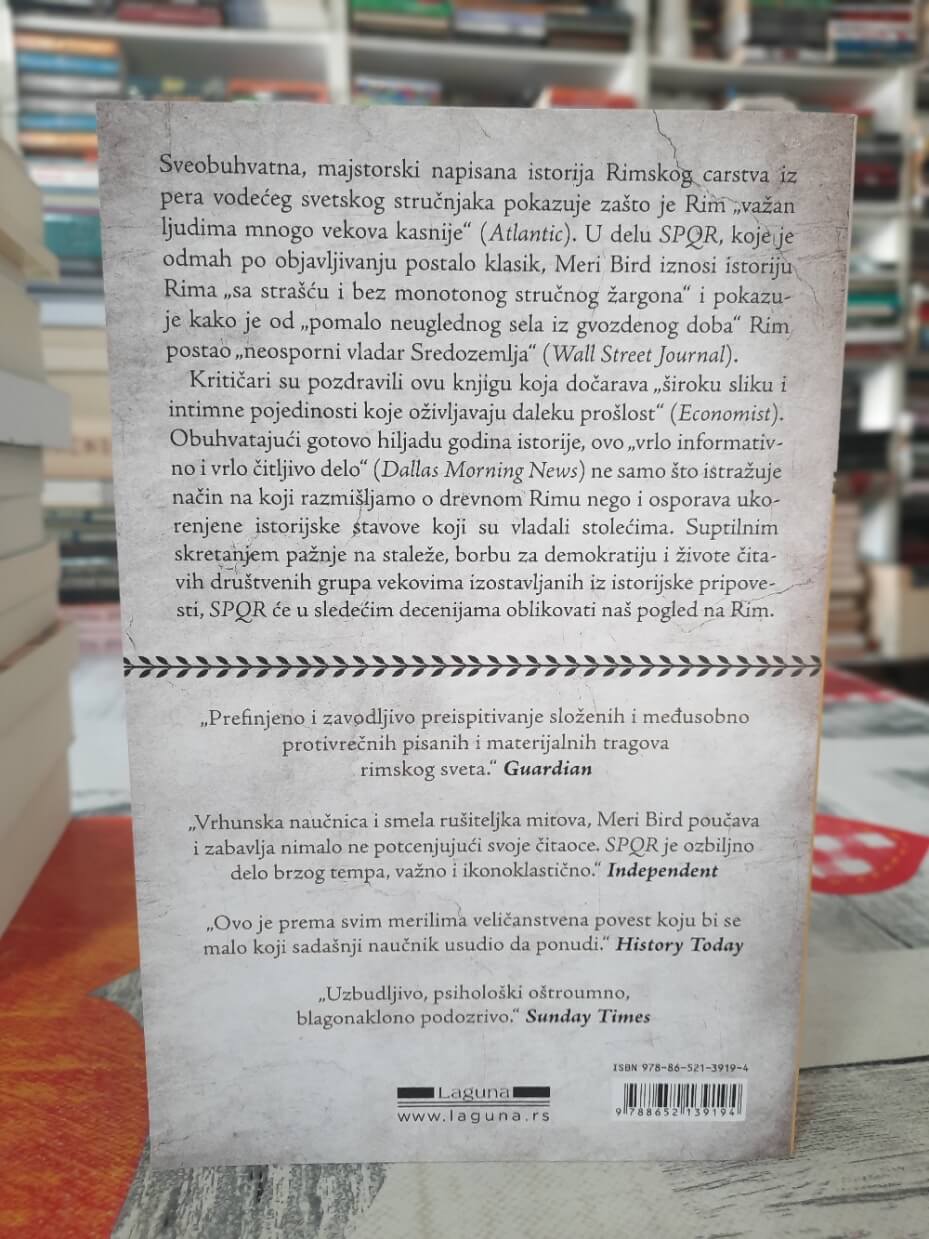 Sveobuhvatna, majstorski napisana istorija Rimskog carstva iz
pera vodećeg svetskog stručnjaka pokazuje zašto je Rim „važan
ljudima mnogo vekova kasnije“ (Atlantic). U delu SPQR, koje je
odmah po objavljivanju postalo klasik, Meri Bird iznosi istoriju
Rima „sa strašću i bez monotonog stručnog žargona“ i pokazu-
je kako je od „pomalo neuglednog sela iz gvozdenog doba“ Rim
postao „neosporni vladar Sredozemlja“ (Wall Street Journal).
Kritičari su pozdravili ovu knjigu koja dočarava „široku sliku i
intimne pojedinosti koje oživljavaju daleku prošlost“ (Economist).
Obuhvatajući gotovo hiljadu godina istorije, ovo „vrlo informativ-
no i vrlo čitljivo delo“ (Dallas Morning News) ne samo što istražuje
način na koji razmišljamo o drevnom Rimu nego i osporava uko-
renjene istorijske stavove koji su vladali stolećima. Suptilnim
skretanjem pažnje na staleže, borbu za demokratiju i živote čita-
vih društvenih grupa vekovima izostavljanih iz istorijske pripove-
sti, SPQR će u sledećim decenijama oblikovati naš pogled na Rim.
„Prefinjeno i zavodljivo preispitivanje složenih i međusobno
protivrečnih pisanih i materijalnih tragova
rimskog sveta.“ Guardian
„Vrhunska naučnica i smela rušiteljka mitova, Meri Bird poučava
i zabavlja nimalo ne potcenjujući svoje čitaoce. SPQR je ozbiljno
delo brzog tempa, važno i ikonoklastično.“ Independent
„Ovo je prema svim merilima veličanstvena povest koju bi se
malo koji sadašnji naučnik usudio da ponudi.“ History Today
„Uzbudljivo, psihološki oštroumno,
blagonaklono podozrivo.“ Sunday Times
ISBN 978-86-521-3919-4
Laguna
www.laguna.rs
9 788652 139194